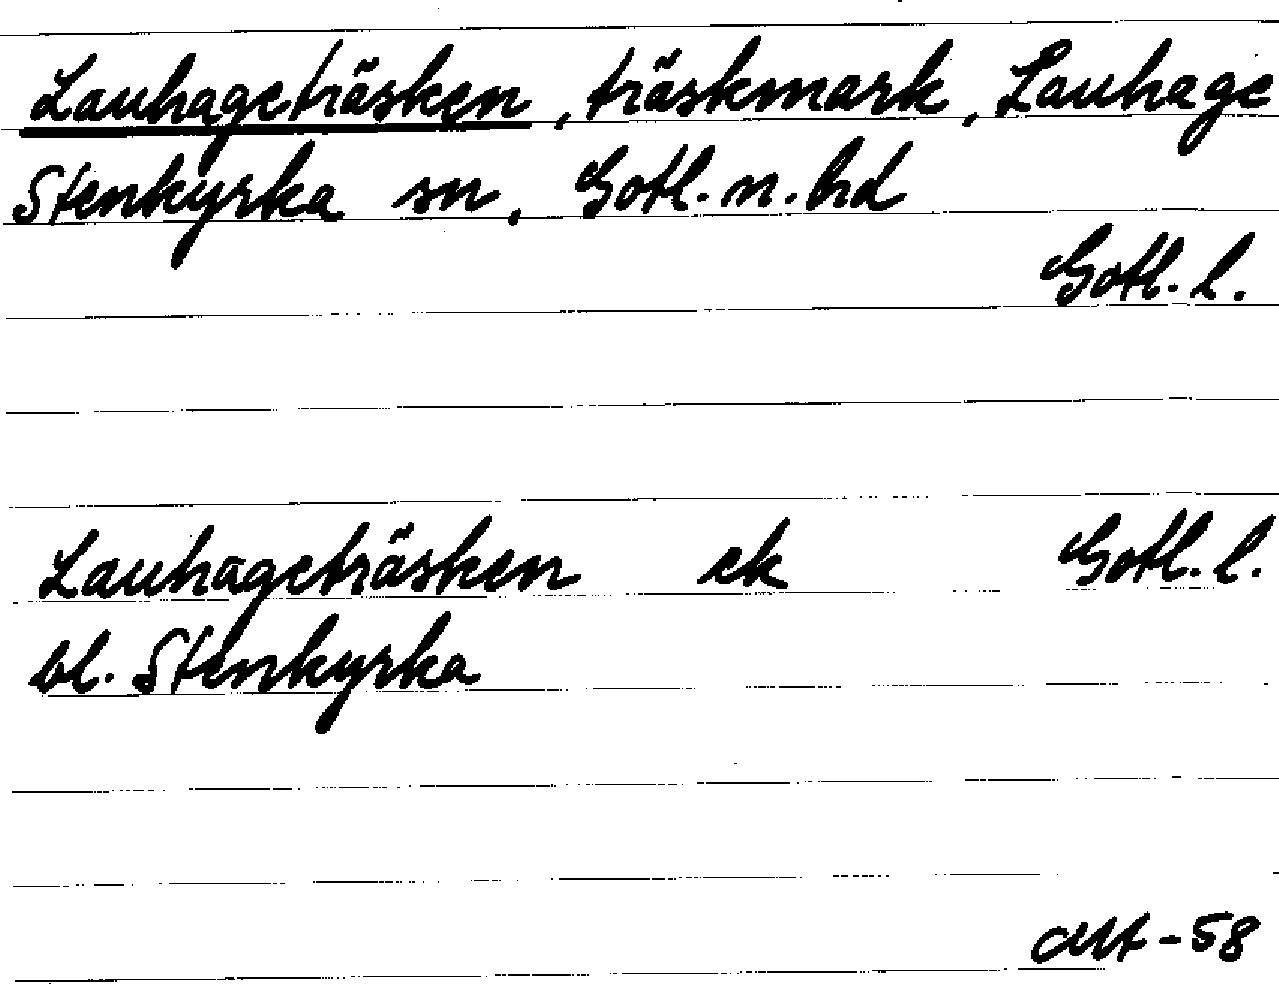 Lauhageträsken, träskmark, Lauhage
Stenkyrka sn, Gotl. n. hd
Gotl. l.
Lauhageträsken ek Gotl. l.
bl. Stenkyrka
-58